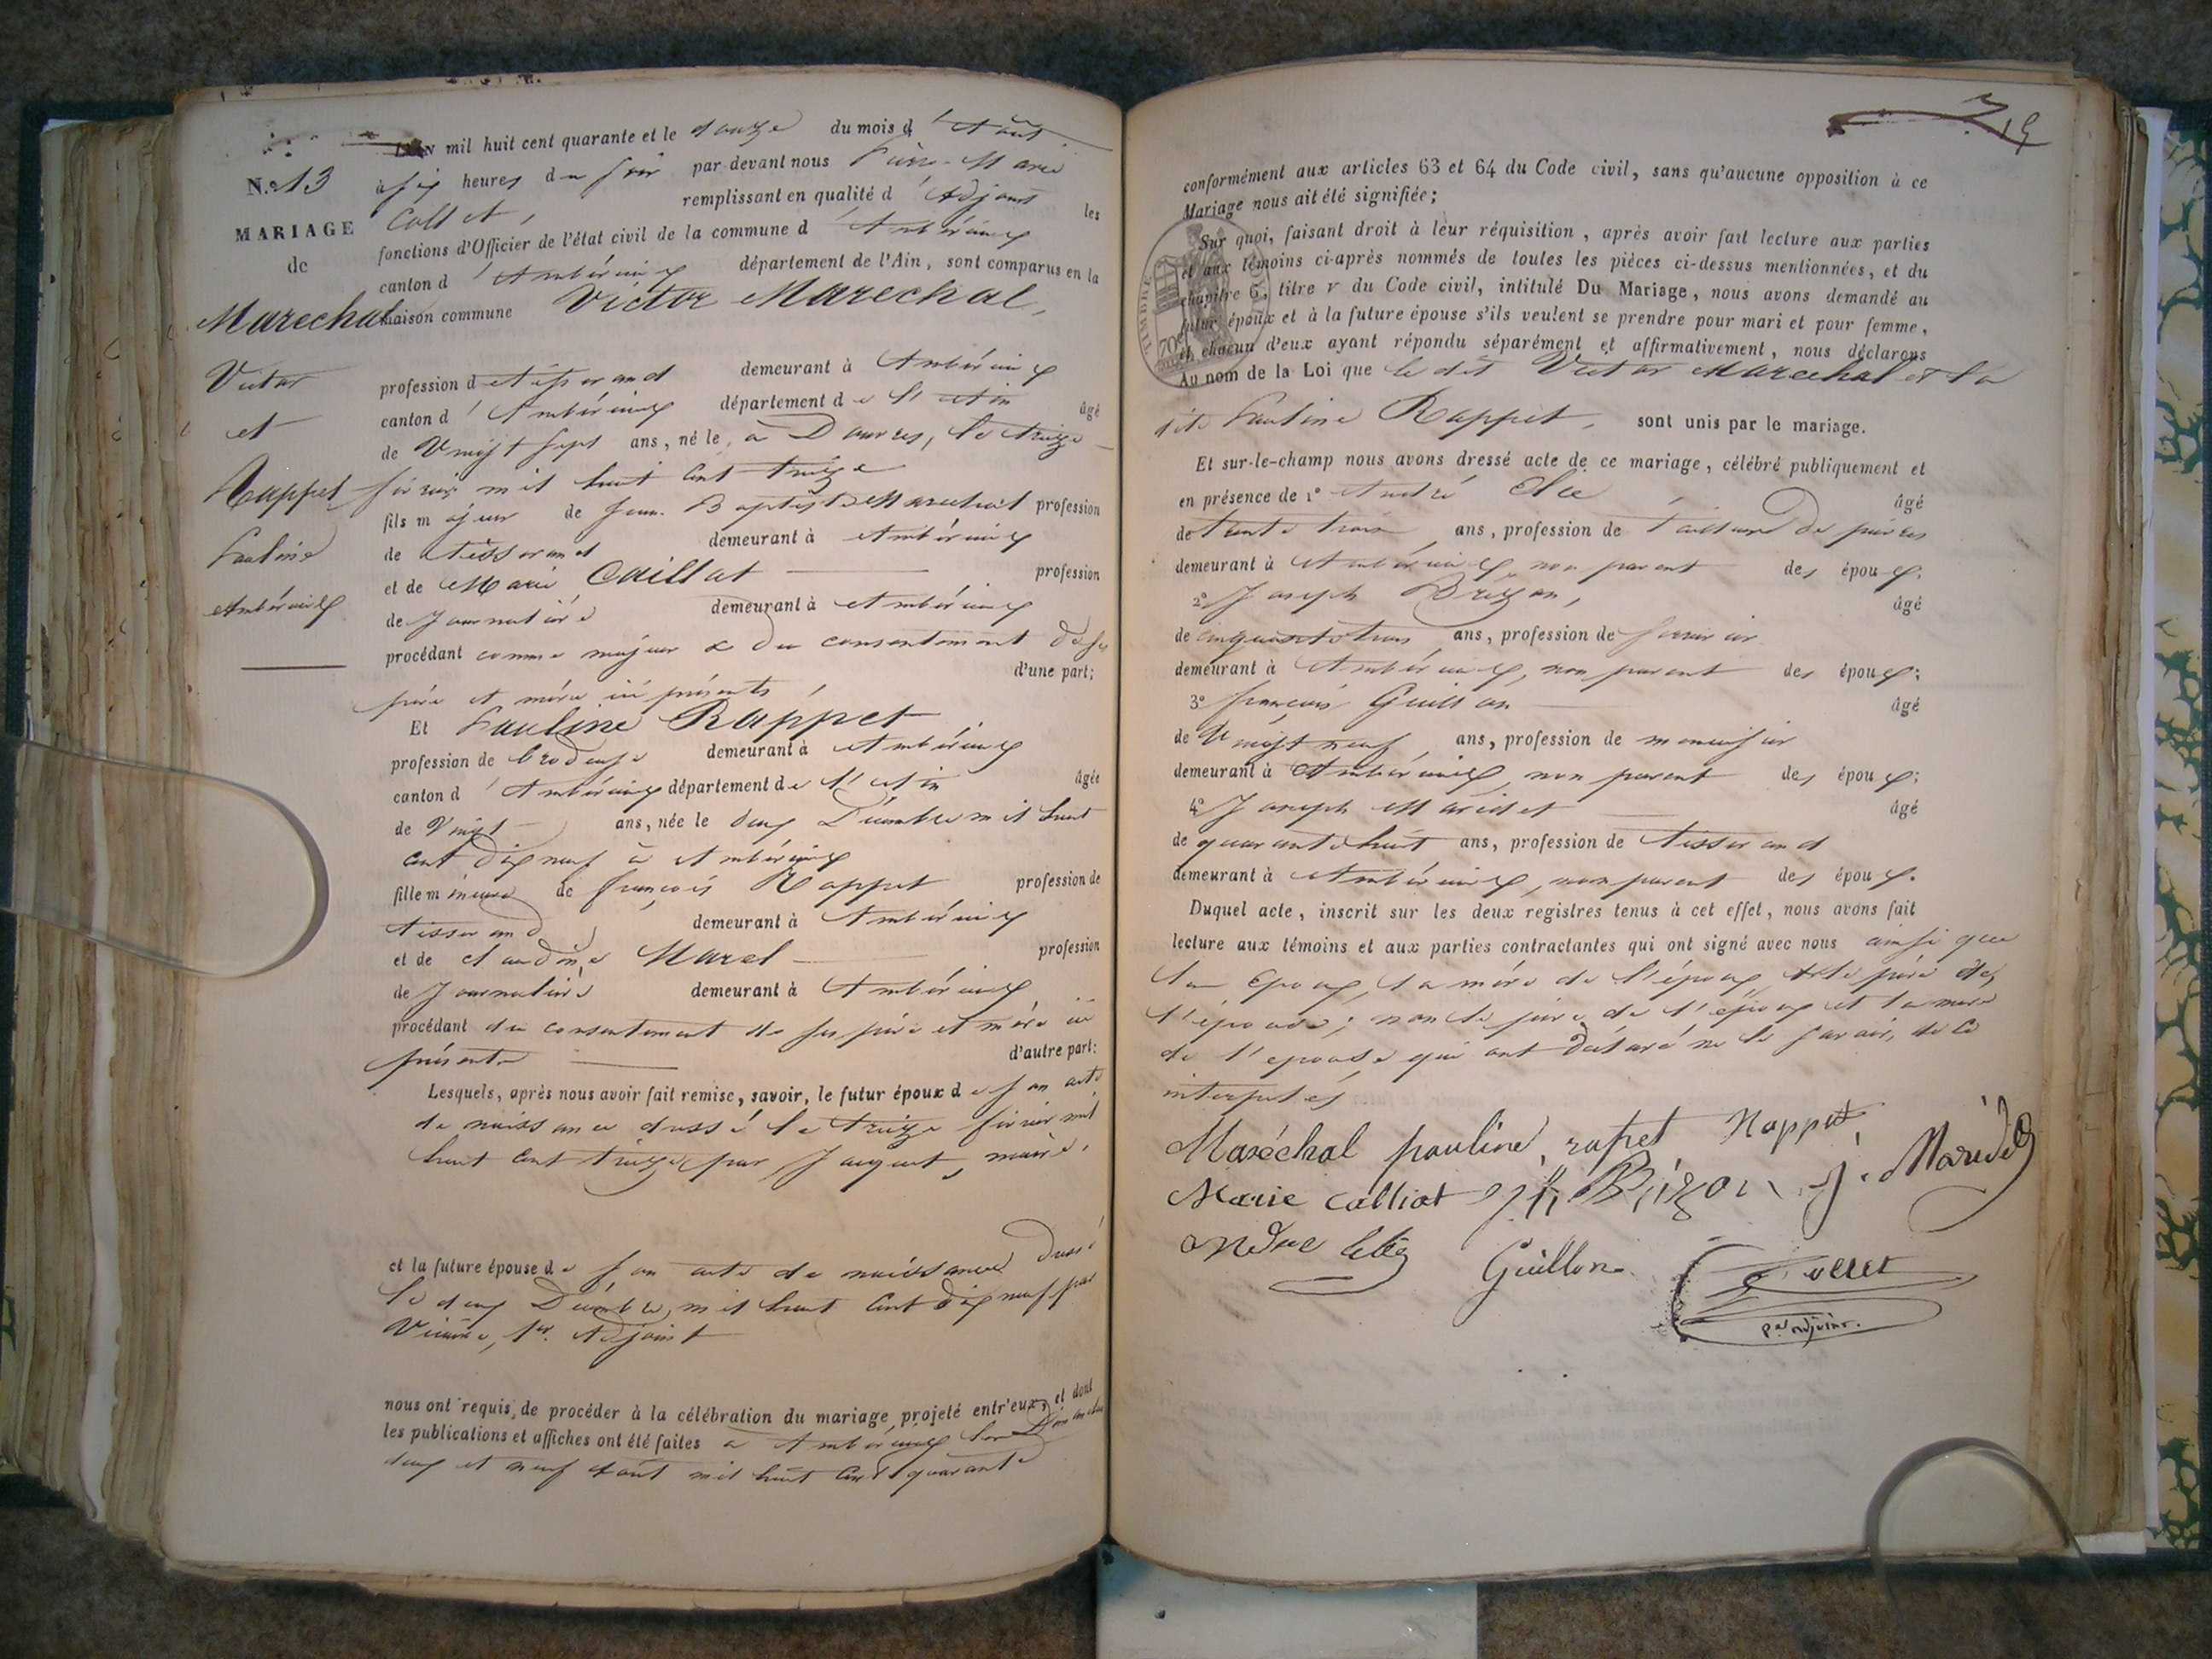 L'AN mil huit cent quarante et le douze du mois d'Août
N.° 13
à six heures du soir par-devant nous Pierre-Marie
Collet, remplissant en qualité d'Adjoint les
MARIAGE
fonctions d'Officier de l'état civil de la commune d'Ambérieux
de
canton d'Ambérieux département de l'Ain, sont comparus en la
Marechal
maison commune Victor Marechal,
Victor
profession de tisserand demeurant à Ambérieux
canton d'Ambérieux département de l'Ain âgé
et
de Vingt sept ans, né le, à Douvres, le treize
Rappet
février mil huit cent treize
fils majeur de Jean-Baptiste Marechal profession
Pauline
de tisserand demeurant à Ambérieux
et de Marie Caillat profession
Ambérieux
de Journalière demeurant à Ambérieux
procédant comme majeur & du consentement de ses
d'une part;
père et mère ici présents,
Et Pauline Rappet,
profession de brodeuse demeurant à Ambérieux
canton d'Ambérieux département de l'Ain âgée
de Vingt ans, née le deux Décembre mil huit
cent dix neuf à Ambérieux
fille mineure de françois Rappet profession de
tisserand demeurant à Ambérieux
et de Claudine Marel profession
de Journalière demeurant à Ambérieux
procédant du consentement de ses père et mère ici
présents d'autre part:
Lesquels, après nous avoir fait remise, savoir, le futur époux de son acte
de naissance dressé le treize février mil
huit cent treize par Jacquet, maire,
et la future épouse de son acte de naissance dressé
le deux Décembre mil huit cent dix neuf par
1er. Adjoint
nous ont requis, de procéder à la célébration du mariage projeté entr'eux, et dont
les publications et affiches ont été faites à Ambérieux les Dimanches
deux et neuf Août mil huit cent quarante
conformément aux articles 63 et 64 du Code civil, sans qu'aucune opposition à ce
Mariage nous ait été signifiée;
Sur quoi, faisant droit à leur réquisition, après avoir fait lecture aux parties
et aux témoins ci-après nommés de toutes les pièces ci-dessus mentionnées, et du
chapitre 6, titre v du Code civil, intitulé Du Mariage, nous avons demandé au
futur époux et à la future épouse s'ils veulent se prendre pour mari et pour femme,
et chacun d'eux ayant répondu séparément et affirmativement, nous déclarons
Au nom de la Loi que le dit Victor Marechal et la
dite Pauline Rappet, sont unis par le mariage.
Et sur-le-champ nous avons dressé acte de ce mariage, célébré publiquement et
en présence de 1° André âgé
de trente trois ans, profession de tailleur de pierres
demeurant à Ambérieux, non parent des époux;
2° Joseph Brizon, âgé
de cinquante trois ans, profession de
demeurant à Ambérieux, non parent des époux;
3° françois Guillon âgé
de Vingt neuf ans, profession de menuisier
demeurant à Ambérieux, non parent des époux;
4° Joseph Maridet âgé
de quarante huit ans, profession de tisserand
demeurant à Ambérieux, non parent des époux.
Duquel acte, inscrit sur les deux registres tenus à cet effet, nous avons fait
lecture aux témoins et aux parties contractantes qui ont signé avec nous ainsi que
les Epoux, la mère de l'époux, et le père de
l'épouse; non le père de l'époux et la mère
de l'epouse qui ont déclaré ne le savoir, de ce
interpelés
Maréchal pauline, rapet Rappet
Marie Calliat Brizon J. Maridet
Guillon Collet